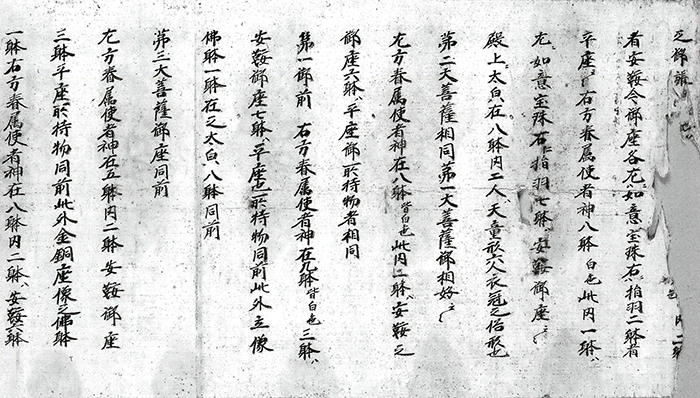 之御議
者安鞍令御座各左ニ如意宝珠右ニ指羽二躰者
平座〻右方眷属使者神八躰白色此内一躰ハ
左ニ如意宝珠右ニ指羽七躰ハ安鞍御座〻
殿上太自在八躰内二人ハ天童形六人衣冠之俗形也
第二大菩薩相同第一大菩薩御相好〻
左方眷属使者神在八躰皆白色此内二躰ハ安鞍之
御座六躰ハ平座御於持物者相同
第一御前 右方眷属使者神在九躰皆白色三躰ハ
安鞍御座七躰ハ平座也於持物同前此外立像
佛躰一躰在之太白ハ八躰同前
第三大菩薩御座同前
左方眷属使者神在五躰内二躰安鞍御座
三躰平座於持物同前此外金銅座像之佛躰
一躰右方眷属使者神在八躰内二躰ハ安鞍六躰